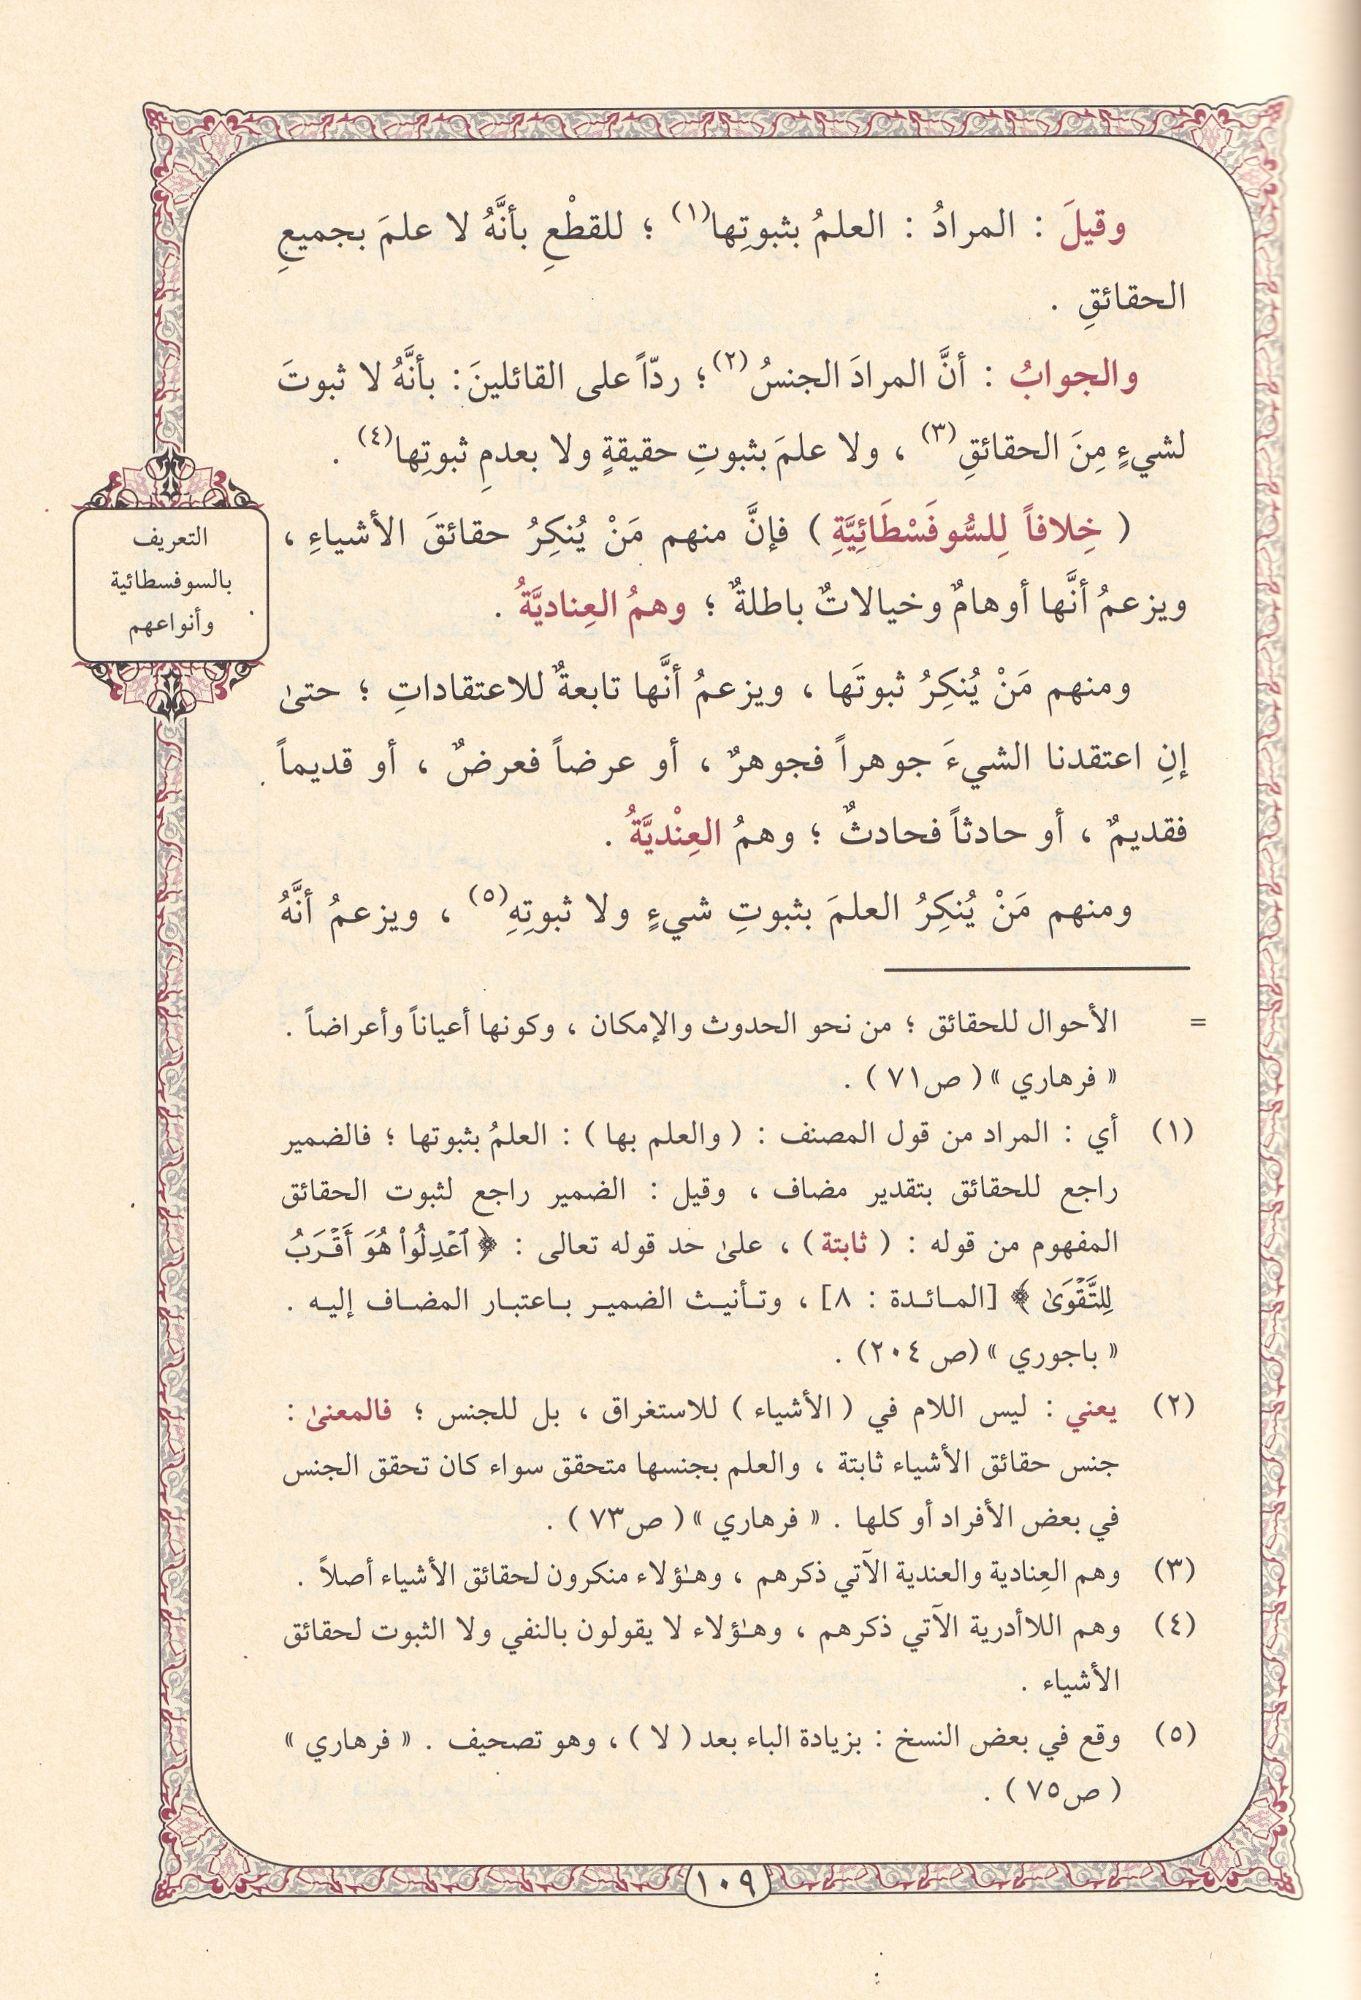 وقيلَ : المرادُ : العلمُ بثبوتِها(١) ؛ للقطْعِ بأنَّهُ لا علمَ بجميعِ
الحقائقِ .
والجوابُ : أنَّ المرادَ الجنسُ(٢) ؛ ردّاً على القائلينَ : بأنَّهُ لا ثبوتَ
لشيءٍ مِنَ الحقائقِ(٣) ، ولا علمَ بثبوتِ حقيقةٍ ولا بعدمِ ثبوتِها(٤) .
( خِلافاً لِلسُّوفَسْطَائِيَّةِ ) فإنَّ منهم مَنْ يُنكِرُ حقائقَ الأشياءِ ،
ويزعمُ أنَّها أوهامٌ وخيالاتٌ باطلةٌ ؛ وهمُ العِناديَّةُ .
ومنهم مَنْ يُنكِرُ ثبوتَها ، ويزعمُ أنَّها تابعةٌ للاعتقاداتِ ؛ حتىٰ
إنِ اعتقدنا الشيءَ جوهراً فجوهرٌ ، أو عرضاً فعرضٌ ، أو قديماً
فقديمٌ ، أو حادثاً فحادثٌ ؛ وهمُ العِنْديَّةُ .
ومنهم مَنْ يُنكِرُ العلمَ بثبوتِ شيءٍ ولا ثبوتِهِ(٥) ، ويزعمُ أنَّهُ
التعريف
بالسوفسطائية
وأنواعهم
= الأحوال للحقائق ؛ من نحو الحدوث والإمكان ، وكونها أعياناً وأعراضاً .
« فرهاري » ( ص٧١ ) .
(١) أي : المراد من قول المصنف : ( والعلم بها ) : العلمُ بثبوتها ؛ فالضمير
راجع للحقائق بتقدير مضاف ، وقيل : الضمير راجع لثبوت الحقائق
المفهوم من قوله : ( ثابتة ) ، علىٰ حد قوله تعالى : ﴿ ٱعْدِلُوا۟ هُوَ أَقْرَبُ
لِلتَّقْوَىٰ ﴾ [المائدة : ٨] ، وتأنيث الضمير باعتبار المضاف إليه .
« باجوري » (ص ٢٠٤) .
(٢) يعني : ليس اللام في ( الأشياء ) للاستغراق ، بل للجنس ؛ فالمعنىٰ :
جنس حقائق الأشياء ثابتة ، والعلم بجنسها متحقق سواء كان تحقق الجنس
في بعض الأفراد أو كلها . « فرهاري » ( ص٧٣ ) .
(٣) وهم العِنادية والعندية الآتي ذكرهم ، وهٰؤلاء منكرون لحقائق الأشياء أصلاً .
(٤) وهم اللاأدرية الآتي ذكرهم ، وهٰؤلاء لا يقولون بالنفي ولا الثبوت لحقائق
الأشياء .
(٥) وقع في بعض النسخ : بزيادة الباء بعد ( لا ) ، وهو تصحيف . « فرهاري »
( ص٧٥ ) .
١٠٩